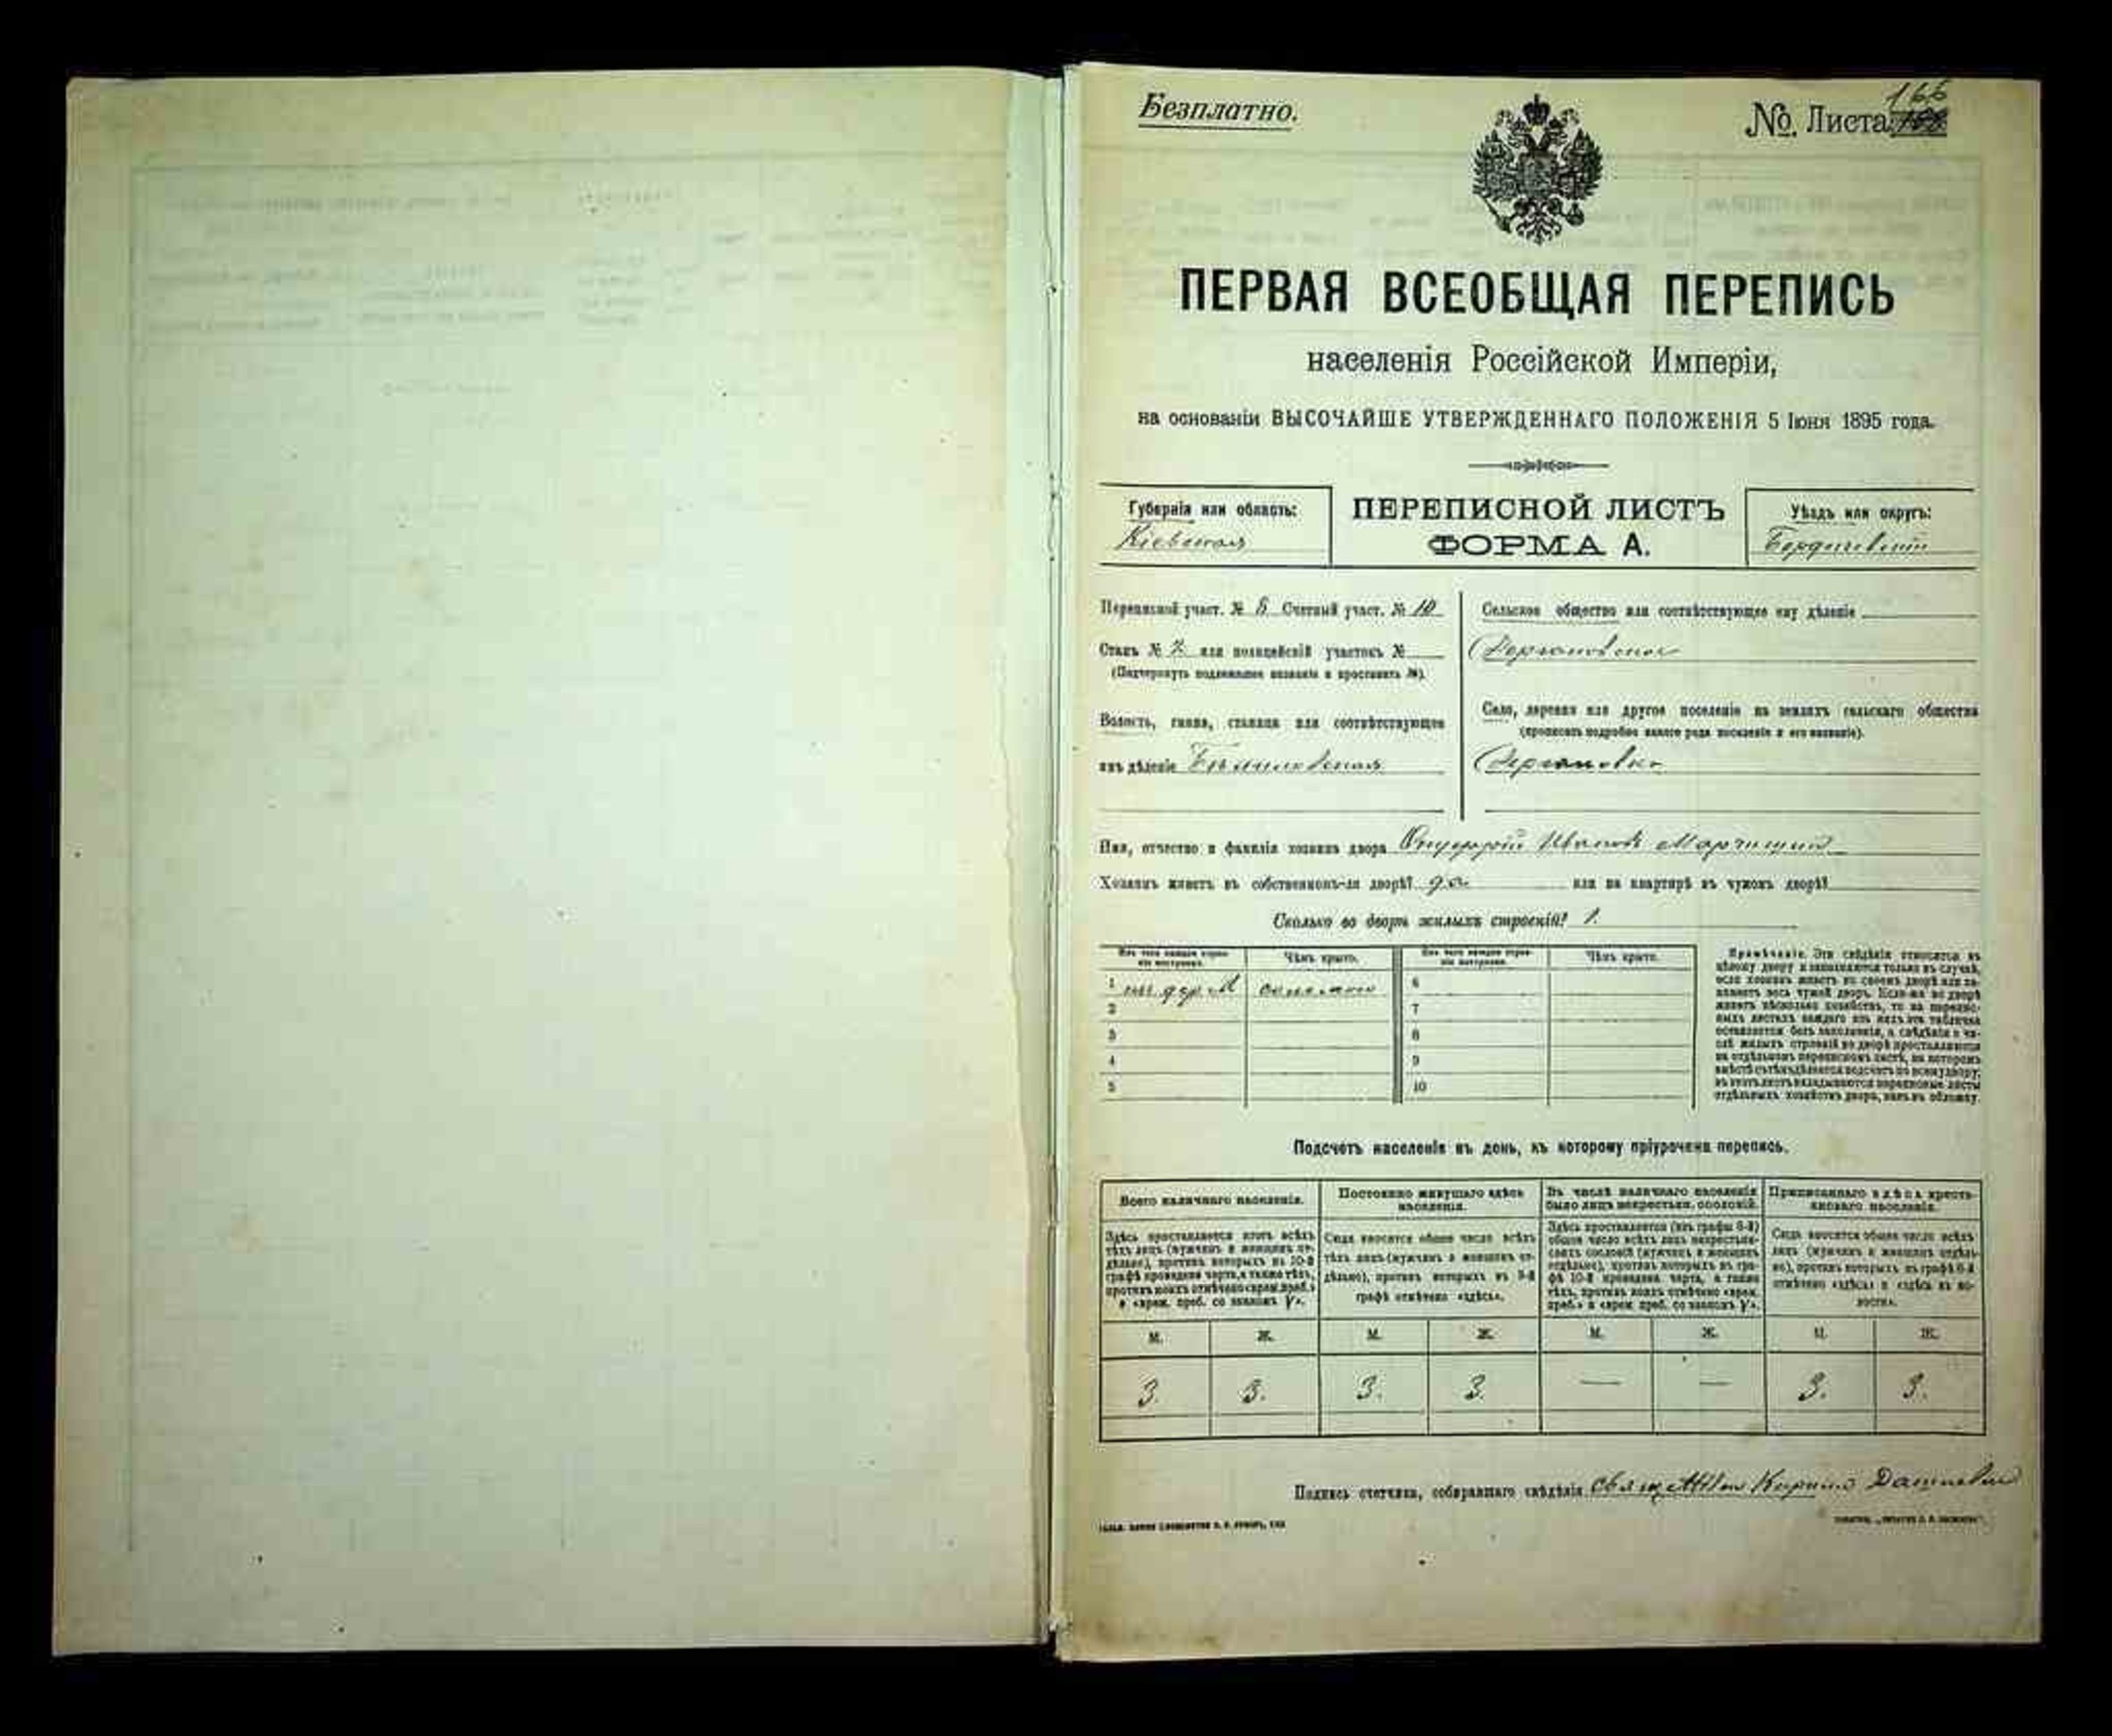 Безплатно.
№ Листа 166
ПЕРВАЯ ВСЕОБЩАЯ ПЕРЕПИСЬ
населенія Россійской Имперіи,
на основаніи ВЫСОЧАЙШЕ УТВЕРЖДЕННАГО ПОЛОЖЕНІЯ 5 Іюня 1895 года.
Губернія или область:
Кіевская
ПЕРЕПИСНОЙ ЛИСТЪ
ФОРМА А.
Уѣздъ или округъ:
Бердичевскій
Переписной участ. № Счетный участ. № 10
Станъ № 2 или полицейскій участокъ №
(Подчеркнуть подлежащее названіе и проставить №).
Волость, гмина, станица или соотвѣтствующее
имъ дѣленіе Бѣлиловская
Сельское общество или соотвѣтствующее ему дѣленіе
Село, деревня или другое поселеніе на земляхъ сельскаго общества
(прописать подробно какого рода поселеніе и его названіе).
Имя, отчество и фамилія хозяина двора Онуфрій Ивановъ
Хозяинъ живетъ въ собственномъ-ли дворѣ? да или на квартирѣ въ чужомъ дворѣ?
Сколько во дворѣ жилыхъ строеній? 1.
Изъ чего каждое строеніе построено.
Чѣмъ крыто.
Изъ чего каждое строеніе построено.
Чѣмъ крыто.
1 соломою
2
3
4
5
6
7
8
9
10
Примѣчаніе. Эти свѣдѣнія относятся къ
цѣлому двору и заполняются только въ случаѣ,
если хозяинъ живетъ въ своемъ дворѣ или занимаетъ весь чужой дворъ. Если-же во дворѣ
живетъ нѣсколько хозяйствъ, то на переписныхъ листахъ каждаго изъ нихъ эта табличка
оставляется безъ заполненія, а свѣдѣнія о числѣ жилыхъ строеній во дворѣ проставляются
на отдѣльномъ переписномъ листѣ, на которомъ
вмѣстѣ съ тѣмъ дѣлается подсчетъ по всему двору;
въ этотъ листъ вкладываются переписные листы
отдѣльныхъ хозяйствъ двора, какъ въ обложку.
Подсчетъ населенія въ день, къ которому пріурочена перепись.
Всего наличнаго населенія.
Постоянно живущаго здѣсь
населенія.
Въ числѣ наличнаго населенія
было лицъ некрестьян. сословій.
Приписаннаго здѣсь крестьянскаго населенія.
Здѣсь проставляется итогъ всѣхъ
тѣхъ лицъ (мужчинъ и женщинъ отдѣльно), противъ которыхъ въ 10-й
графѣ проведена черта, а также тѣхъ,
противъ коихъ отмѣчено «врем. преб.»
и «врем. преб. со знакомъ V».
Сюда вносится общее число всѣхъ
тѣхъ лицъ (мужчинъ и женщинъ отдѣльно), противъ которыхъ въ 9-й
графѣ отмѣчено «здѣсь».
Здѣсь проставляется (изъ графы 6-й)
общее число всѣхъ лицъ некрестьянскихъ сословій (мужчинъ и женщинъ
отдѣльно), противъ которыхъ въ графѣ 10-й проведена черта, а также
тѣхъ, противъ коихъ отмѣчено «врем.
преб.» и «врем. преб. со знакомъ V».
Сюда вносится общее число всѣхъ
лицъ (мужчинъ и женщинъ отдѣльно), противъ которыхъ въ графѣ 8-й
отмѣчено «здѣсь» и «здѣсь въ волости».
М. Ж. М. Ж. М. Ж. М. Ж.
3. 3. 3. 3. — — 3. 3.
Подпись счетчика, собиравшаго свѣдѣнія Кириллъ